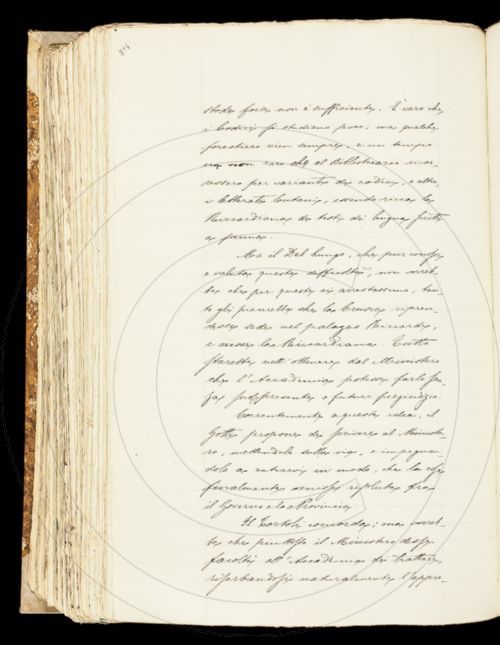 814
stode forse non è sufficiente. È vero che
i Codici si studiano poco; ma qualche
forestiero vien sempre, e un tempo
era non raro che al Bibliotecario scri-
vessero per varianti dei codici, e altro,
i letterati lontani, essendo ricca la
Riccardiana di testi di lingua
a penna.
Ma il Del Lungo, che pur conosce
e valuta queste difficoltà, non vorreb-
be che per queste ci arrestassimo; tan-
to gli parrebbe che la Crusca ripren-
desse sede nel palazzo Riccardi,
e avesse la Riccardiana. Tutto
starebbe nell'ottenere dal Ministero
che l'Accademia potesse farlo sen-
za presente o futuro pregiudizio.
Coerentemente a questa idea, il
Gotti propone di scrivere al Ministe-
ro, mettendolo sulla via, e impegnan-
dolo a entrarci in modo, che la cosa
finalmente venisse risoluta fra
il Governo e la Provincia.
Il Tortoli concorda; ma vorreb-
be che piuttosto il Ministero desse
facoltà all'Accademia di trattare,
riserbandosi naturalmente l'appro-